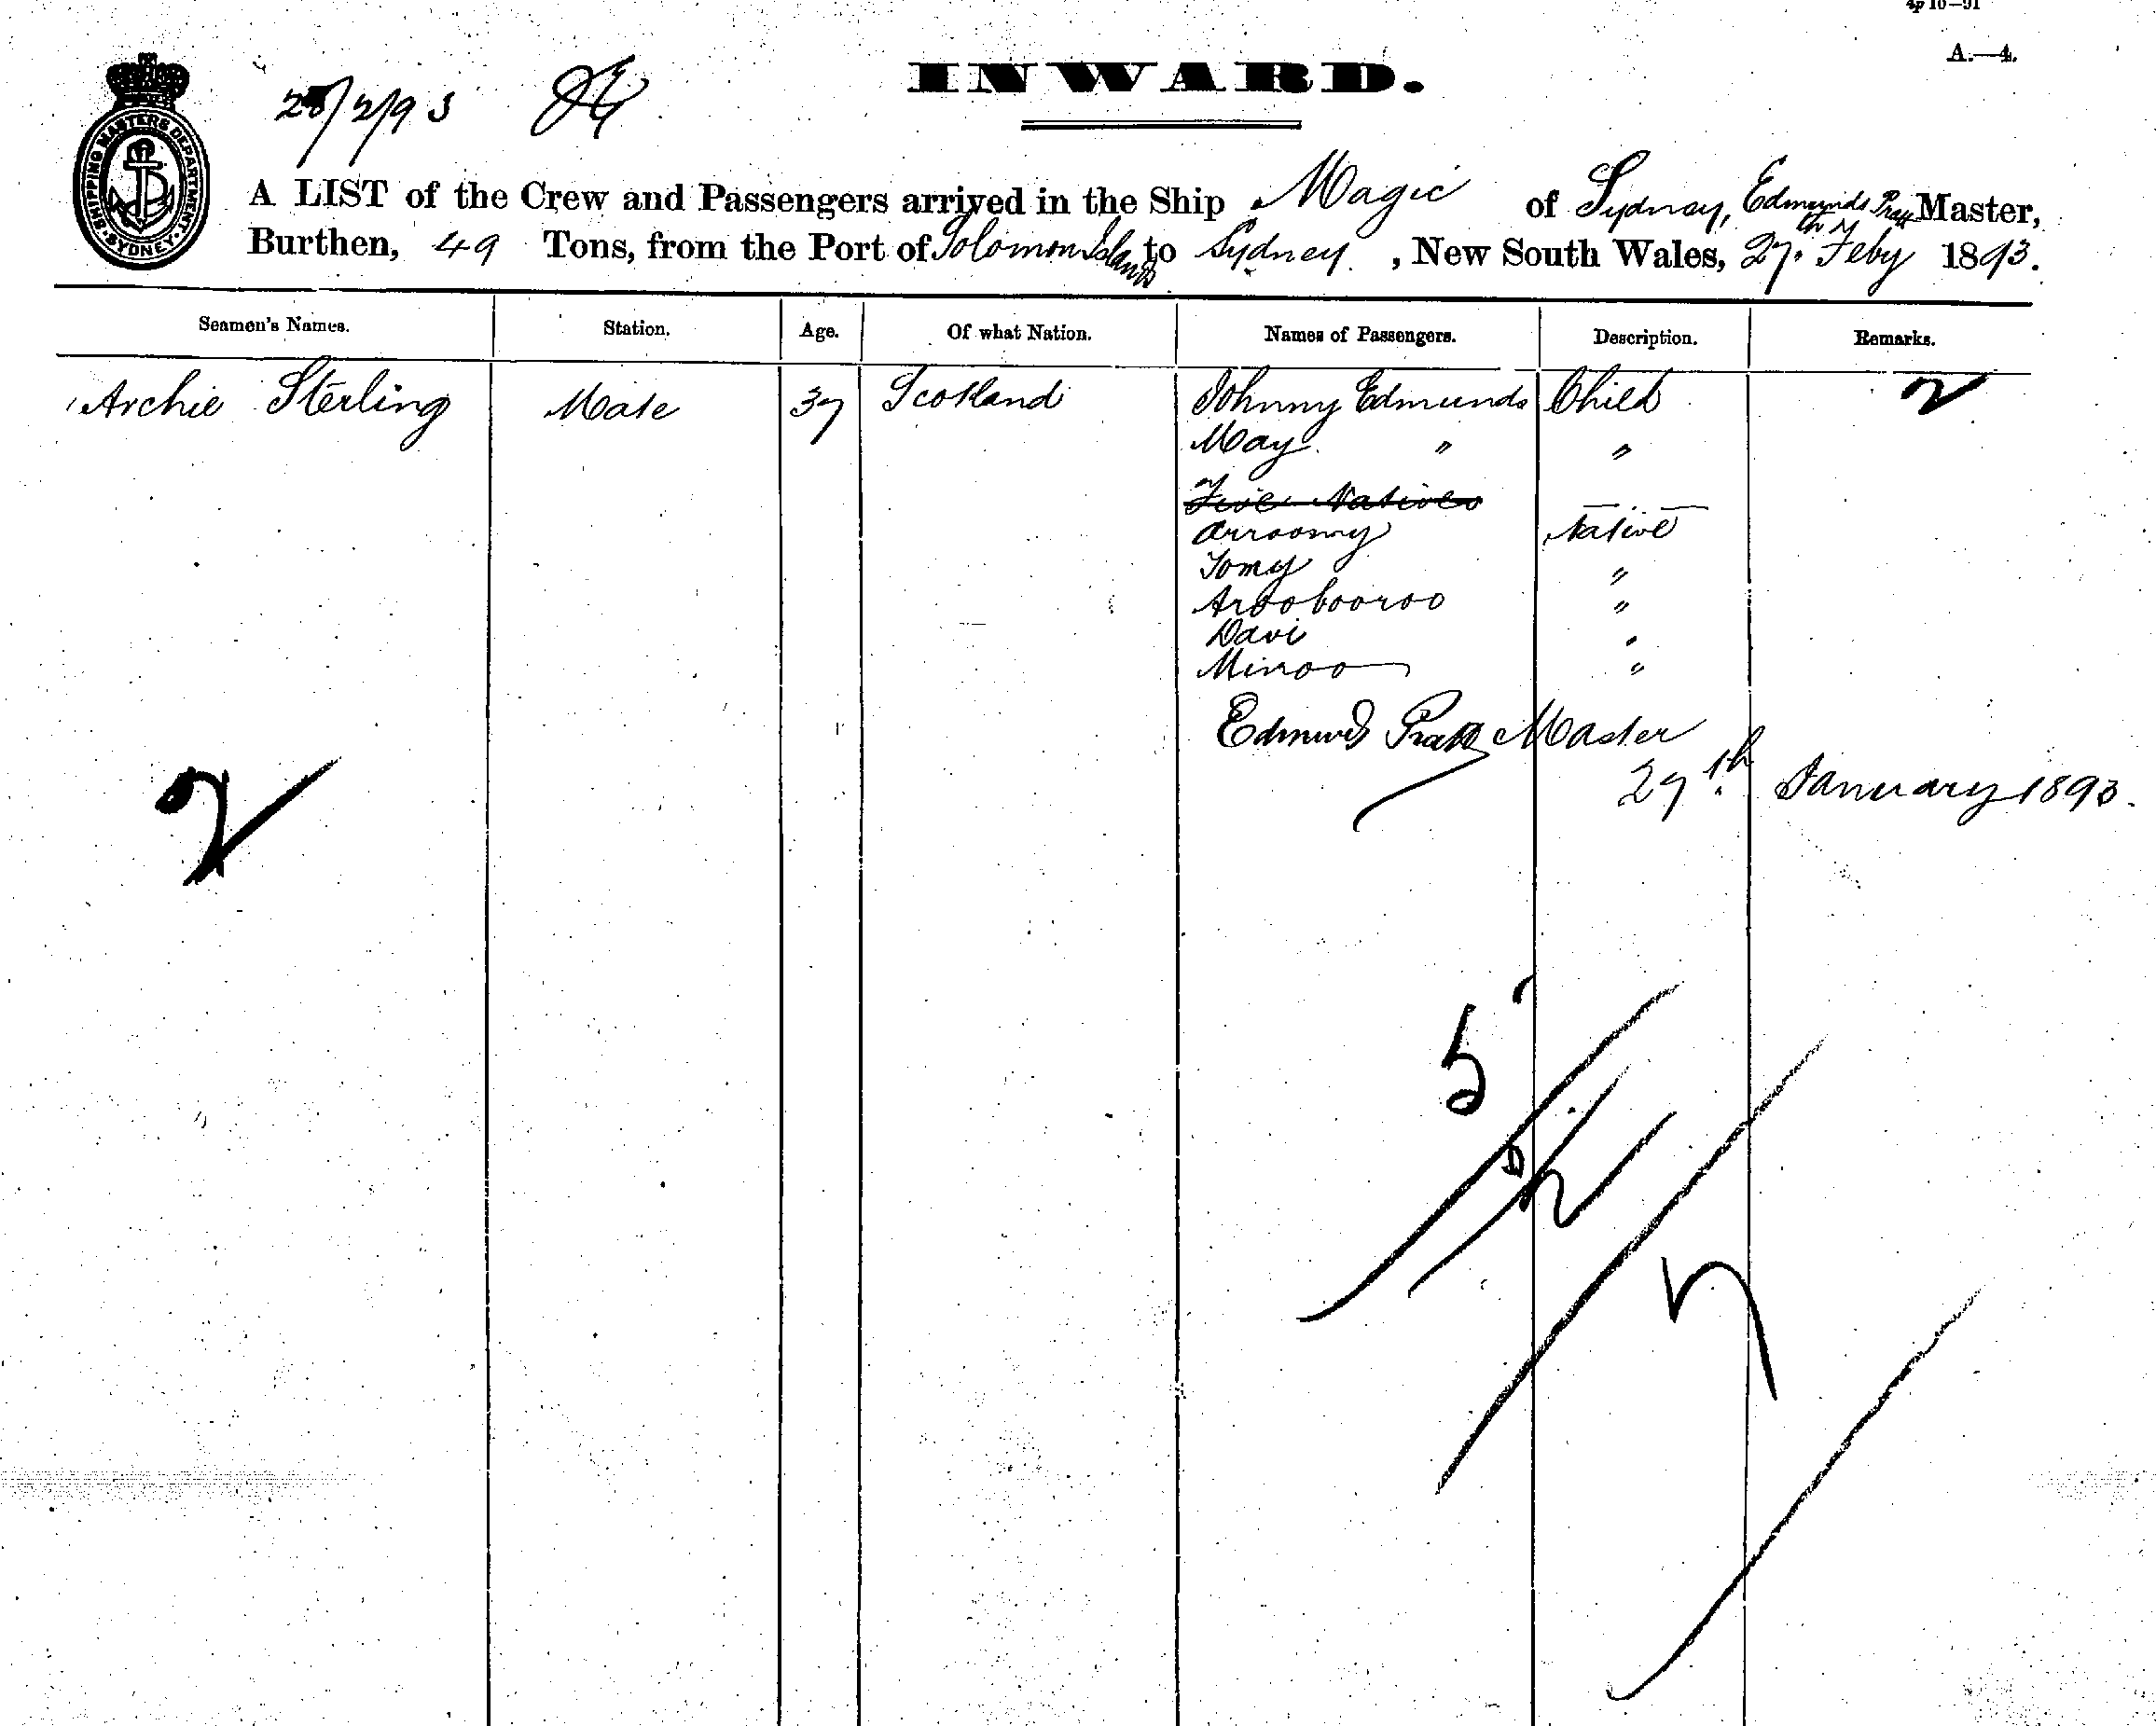 4p 10—91
A.—4.
INWARD.
28/2/93
SHIPPING MASTERS DEPARTMENT · SYDNEY ·
A LIST of the Crew and Passengers arrived in the Ship Magic of Sydney, Edmunds Pratt Master,
Burthen, 49 Tons, from the Port of Solomon Islands to Sydney, New South Wales, 27th Feby 1893.
Seamen's Names. Station. Age. Of what Nation. Names of Passengers. Description. Remarks.
Archie Sterling Mate 37 Scotland Johnny Edmunds Child 2
May " "
Five Natives
Arroomy Native
Tomy "
Aroobooroo "
Davi "
Minoo "
Edmund Pratt Master
27th January 1893.
2
5
2
7